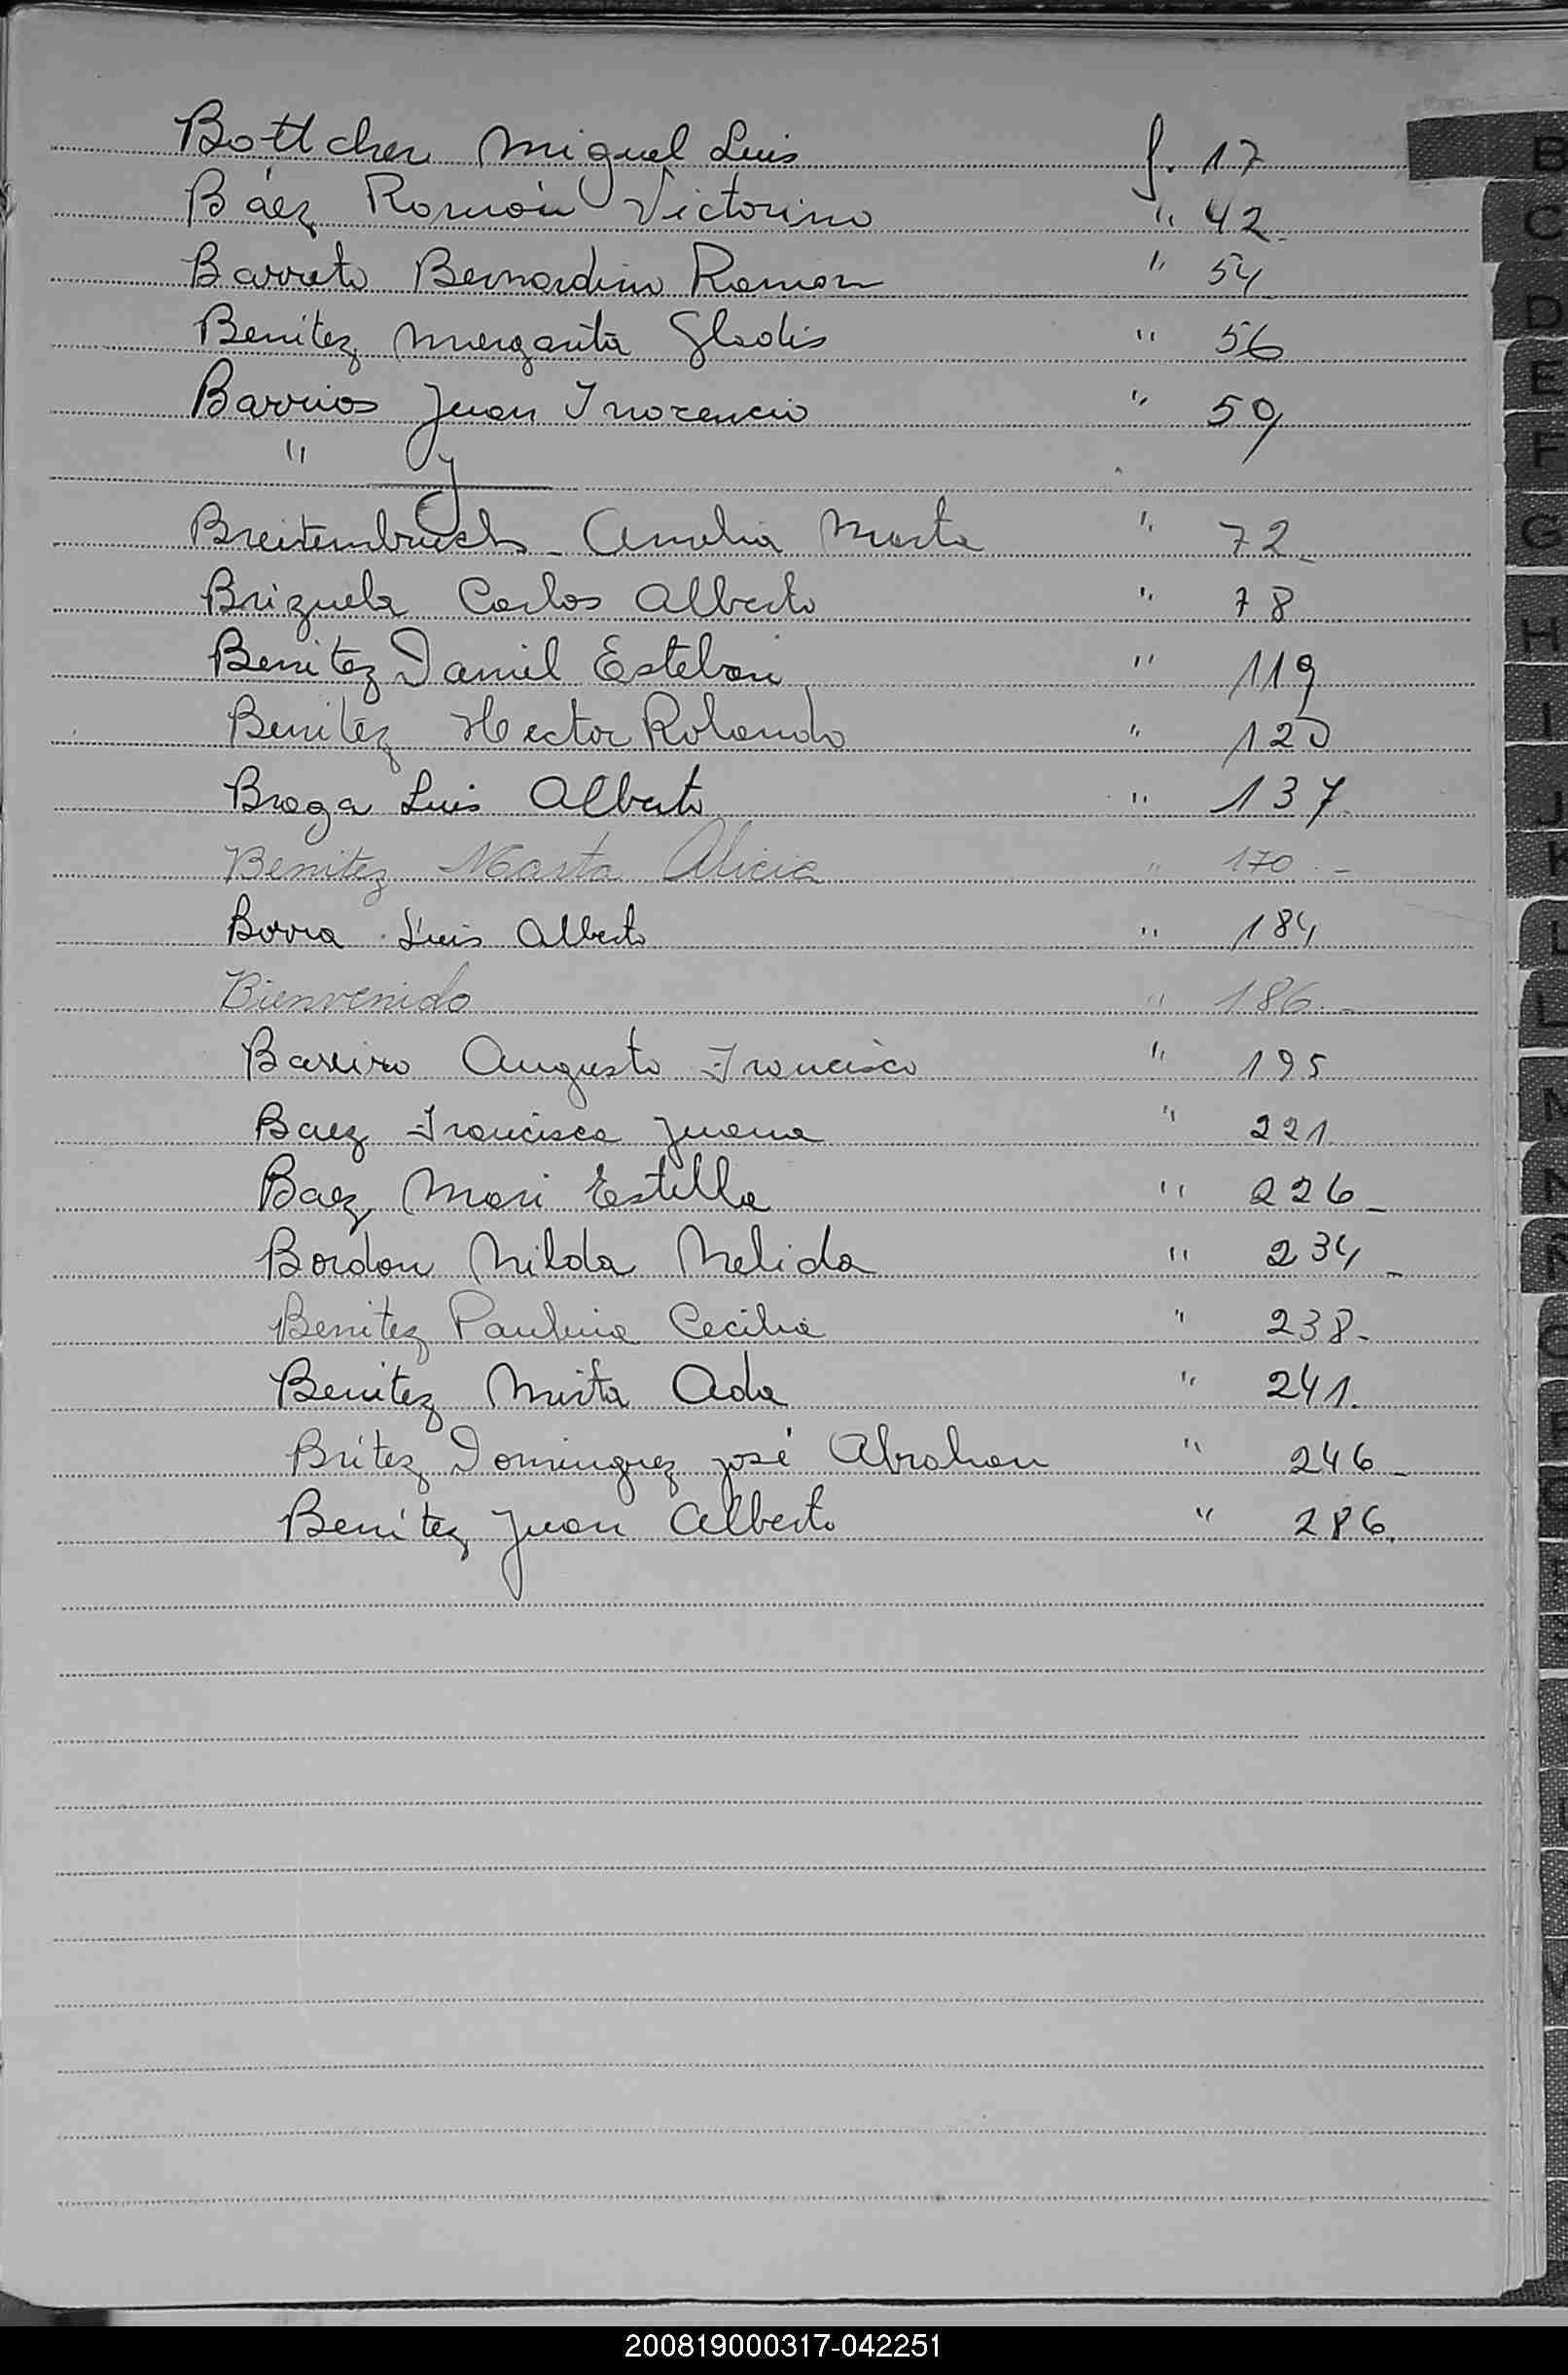 Bottcher Miguel Luis f. 17
Báez Román Victorino " 42
Barreto Bernardino Ramon " 54
Benitez Margarita Gladis " 56
Barrios Juan Inocencio " 59
" J
Breitembruch Amalia Marta " 72
Brizuela Carlos Alberto " 78
Benitez Daniel Esteban " 119
Benitez Hector Rolando " 120
Braga Luis Alberto " 137
Benitez Marta Alicia " 170.-
Borra Luis Alberto " 184
Bienvenido " 186.-
Barreiro Augusto Francisco " 195
Baez Francisca Juana " 221
Baez Mari Estella " 226-
Bordon Nilda Nelida " 234-
Benitez Paulina Cecilia " 238-
Benitez Mirta Ada " 241.
Britez Dominguez José Abrahan " 246-
Benitez Juan Alberto " 286.
B
C
D
E
F
G
H
I
J
K
L
L
M
N
Ñ
O
P
200819000317-042251